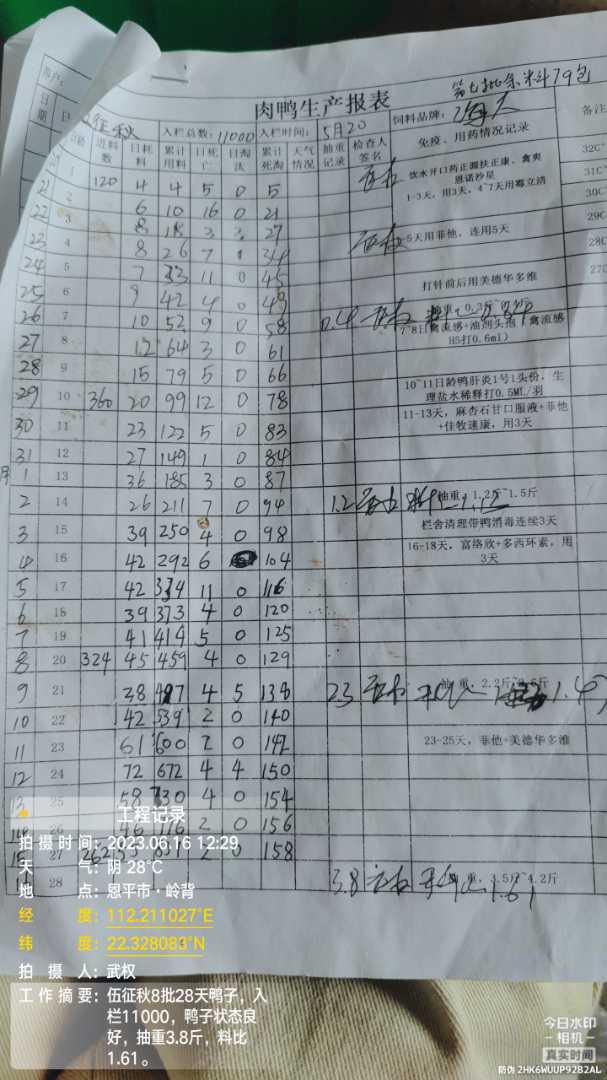 第七批余料79包
肉鸭生产报表
征秋 入栏总数: 11000 入栏时间: 5月20 饲料品牌: 海大
日期 进料数 日耗料 累计用料 日死亡 日淘汰 累计死淘 天气情况 抽重记录 检查人签名 免疫、用药情况记录 备注
21 1 120 4 4 5 0 5 饮水开口药正源扶正康、禽爽 恩诺沙星 32C
1-3天，用3天，4~7天用霉立清 31C
22 2 6 10 16 0 21 30C
23 3 8 18 3 27
24 4 8 26 7 34 5天用菲他，连用5天
25 5 7 33 11 0 45
6 9 42 4 0 49 打针前后用美德华多维
26 7 10 52 9 0 58 0.4
7~8日禽流感+油剂头孢（禽流感H5打0.6ml）
27 8 12 64 3 0 61
28 9 15 79 5 0 66
29 10 360 20 99 12 0 78 10~11日龄鸭肝炎1号1头份，生理盐水稀释打0.5ML/羽
30 11 23 122 5 0 83 11-13天，麻杏石甘口服液+菲他+佳牧速康，用3天
31 12 27 149 1 0 84
1 13 36 185 3 0 87
2 14 26 211 7 0 94 1.2 抽重：1.2斤~1.5斤
3 15 39 250 4 0 98 栏舍清理带鸭消毒连续3天
4 16 42 292 6 104 16-18天，富络欣+多西环素，用3天
5 17 42 334 11 0 116
6 18 39 373 4 0 120
7 19 41 414 5 0 125
8 20 324 45 459 4 0 129
9 21 38 497 4 5 138 23 抽重，2.2斤
10 22 42 539 2 0 140
11 23 61 600 2 0 142 23-25天，菲他+美德华多维
12 24 72 672 4 4 150
13 25 58 730 4 0 154
26 46 776 2 0 156
27 262 2 0 158
28 3.8 重，3.5斤~4.2斤 1.61
工程记录
拍摄时间：2023.06.16 12:29
天气：阴 28°C
地点：恩平市·岭背
经度：112.211027°E
纬度：22.328083°N
拍摄人：武权
工作摘要：伍征秋8批28天鸭子，入
栏11000，鸭子状态良
好，抽重3.8斤，料比
1.61。
今日水印
相机
真实时间
防伪 2HK6WUUP92B2AL